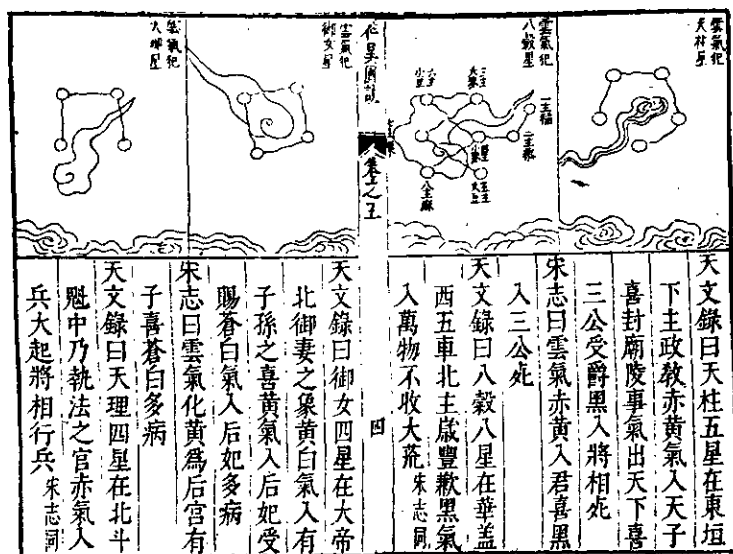 雲氣犯
天柱星
雲氣犯
八穀星
雲氣犯
御女星
雲氣犯
天理星
二主稻
二主黍
三主
大麥
六主
小豆
小麥
五主
大豆
八主麻
卷之五
四
天文錄曰天柱五星在東垣
下主政敎赤黃氣入天子
喜封廟陵事氣出天下喜
三公受爵黑入將相死
宋志曰雲氣赤黃入君喜黑
入三公死
天文錄曰八穀八星在華蓋
西五車北主歲豐歉黑氣
入萬物不收大荒宋志同
天文錄曰御女四星在大帝
北御妻之象黃白氣入有
子孫之喜黃氣入后妃受
賜蒼白氣入后妃多病
宋志曰雲氣化黃爲后宮有
子喜蒼白多病
天文錄曰天理四星在北斗
魁中乃執法之官赤氣入
兵大起將相行兵宋志同